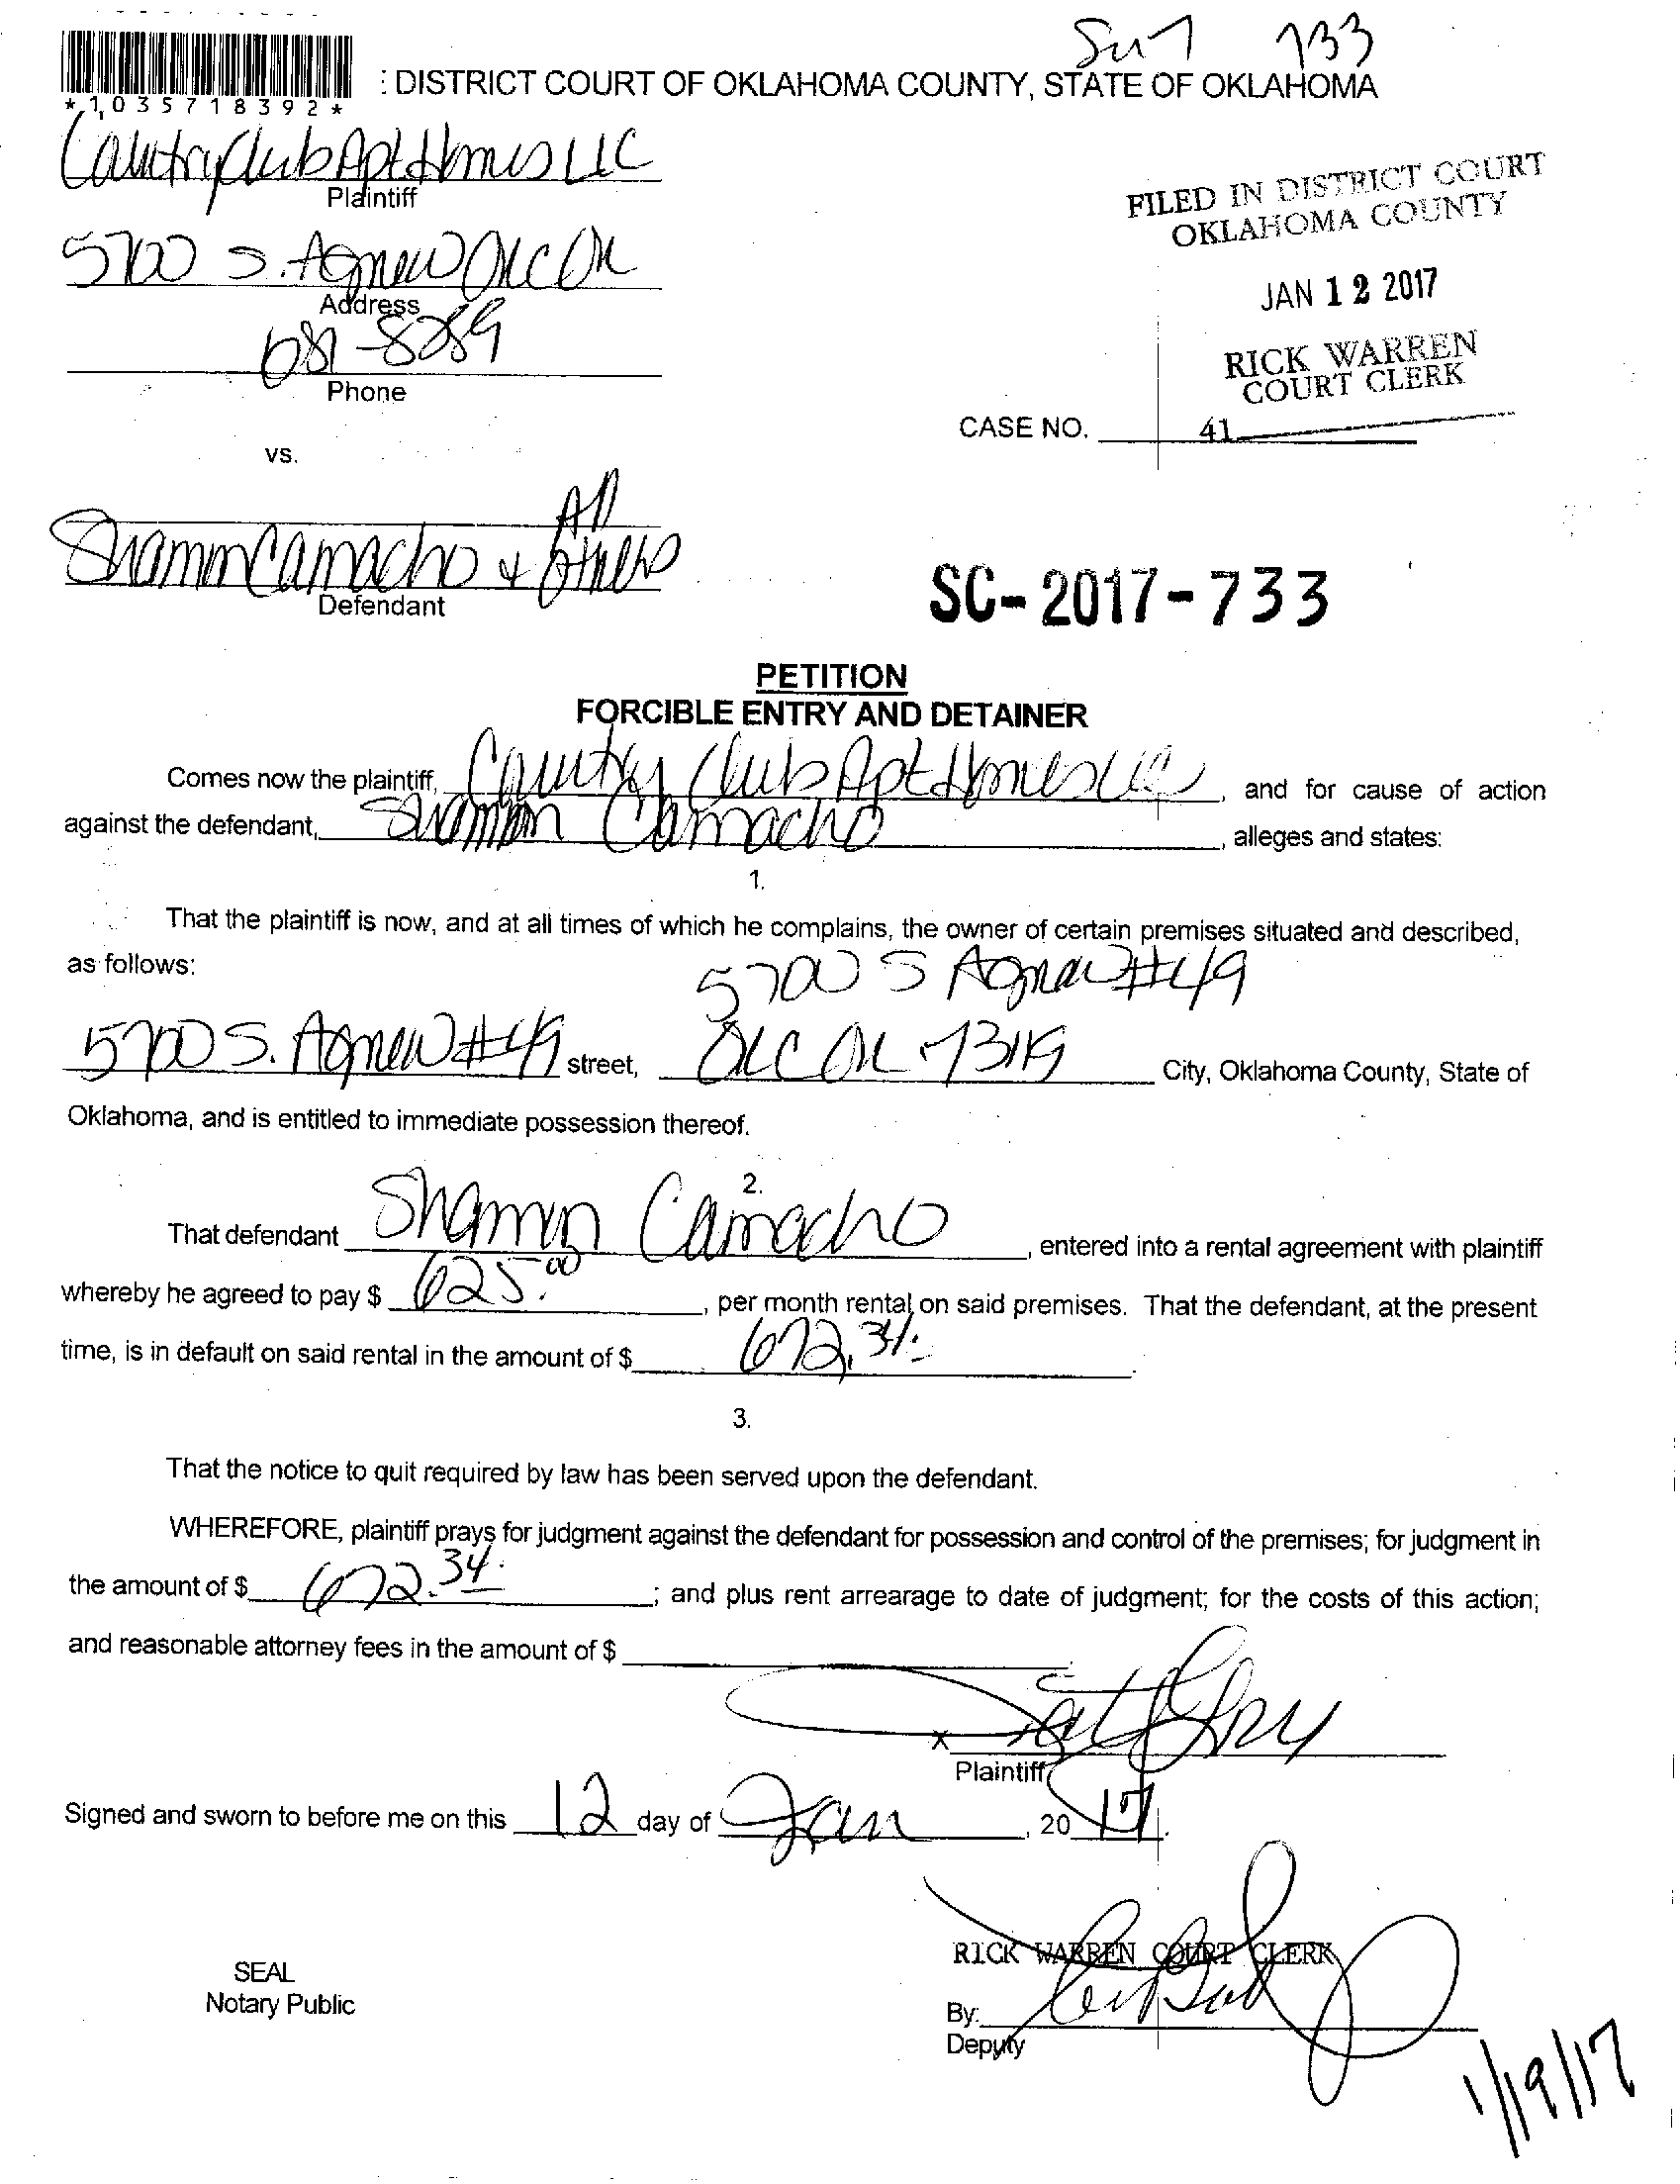 733
: DISTRICT COURT OF OKLAHOMA COUNTY, STATE OF OKLAHOMA
*1035718392*
Country Club Apt Homes LLC
Plaintiff
FILED IN DISTRICT COURT
OKLAHOMA COUNTY
5700 S. Agnew OKC OK
Address
JAN 12 2017
681-8289
Phone
RICK WARREN
COURT CLERK
CASE NO.
41
vs.
All
Camacho & Others
Defendant
SC-2017-733
PETITION
FORCIBLE ENTRY AND DETAINER
Comes now the plaintiff, Country Club Apt Homes LLC, and for cause of action
against the defendant, Camacho, alleges and states:
1.
That the plaintiff is now, and at all times of which he complains, the owner of certain premises situated and described,
as follows:
5700 S Agnew #49
5700 S. Agnew #49 street, OKC OK 73119 City, Oklahoma County, State of
Oklahoma, and is entitled to immediate possession thereof.
2.
That defendant Camacho, entered into a rental agreement with plaintiff
whereby he agreed to pay $ 625.00, per month rental on said premises. That the defendant, at the present
time, is in default on said rental in the amount of $ 672.34.
3.
That the notice to quit required by law has been served upon the defendant.
WHEREFORE, plaintiff prays for judgment against the defendant for possession and control of the premises; for judgment in
the amount of $ 672.34; and plus rent arrearage to date of judgment; for the costs of this action;
and reasonable attorney fees in the amount of $
x
Plaintiff
Signed and sworn to before me on this 12 day of Jan, 20 17.
RICK WARREN COURT CLERK
SEAL
Notary Public
By:
Deputy
1/19/17